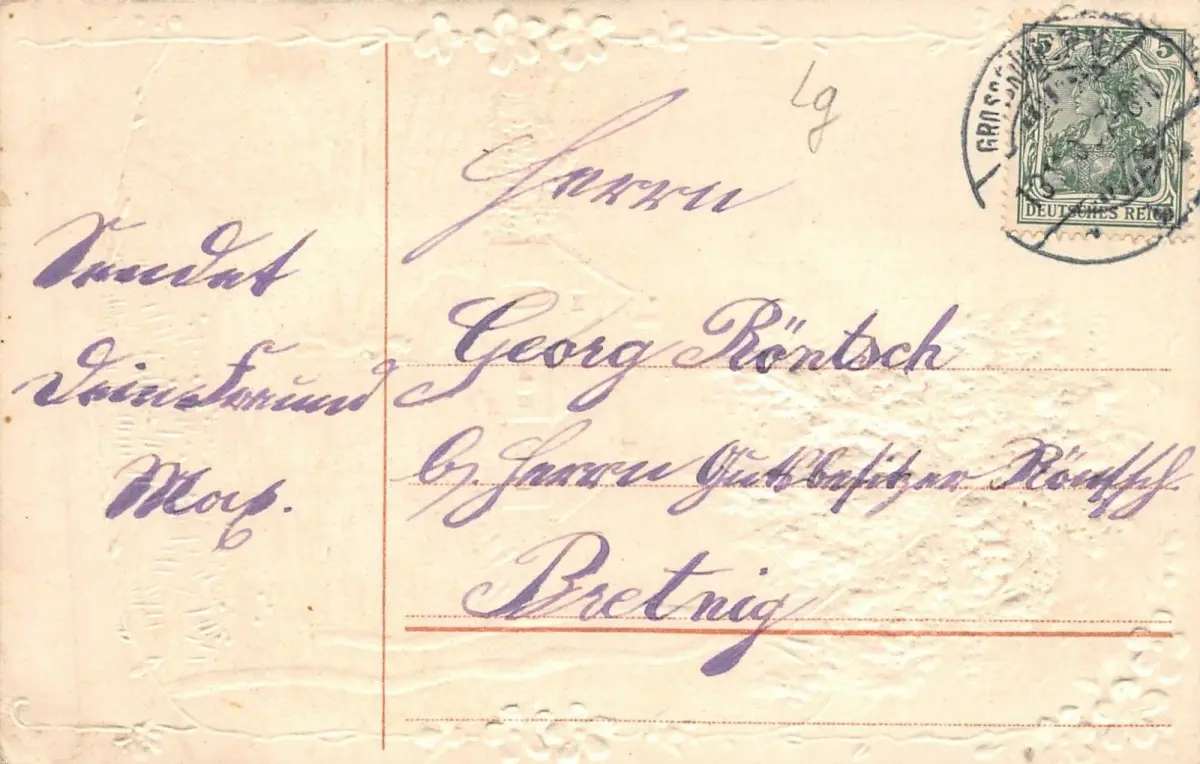 Sendet
Dein Freund
Max.
Herrn
Georg Röntsch
b/ Herrn Gutsbesitzer Röntsch.
Bretnig
Lg
5 5
DEUTSCHES REICH